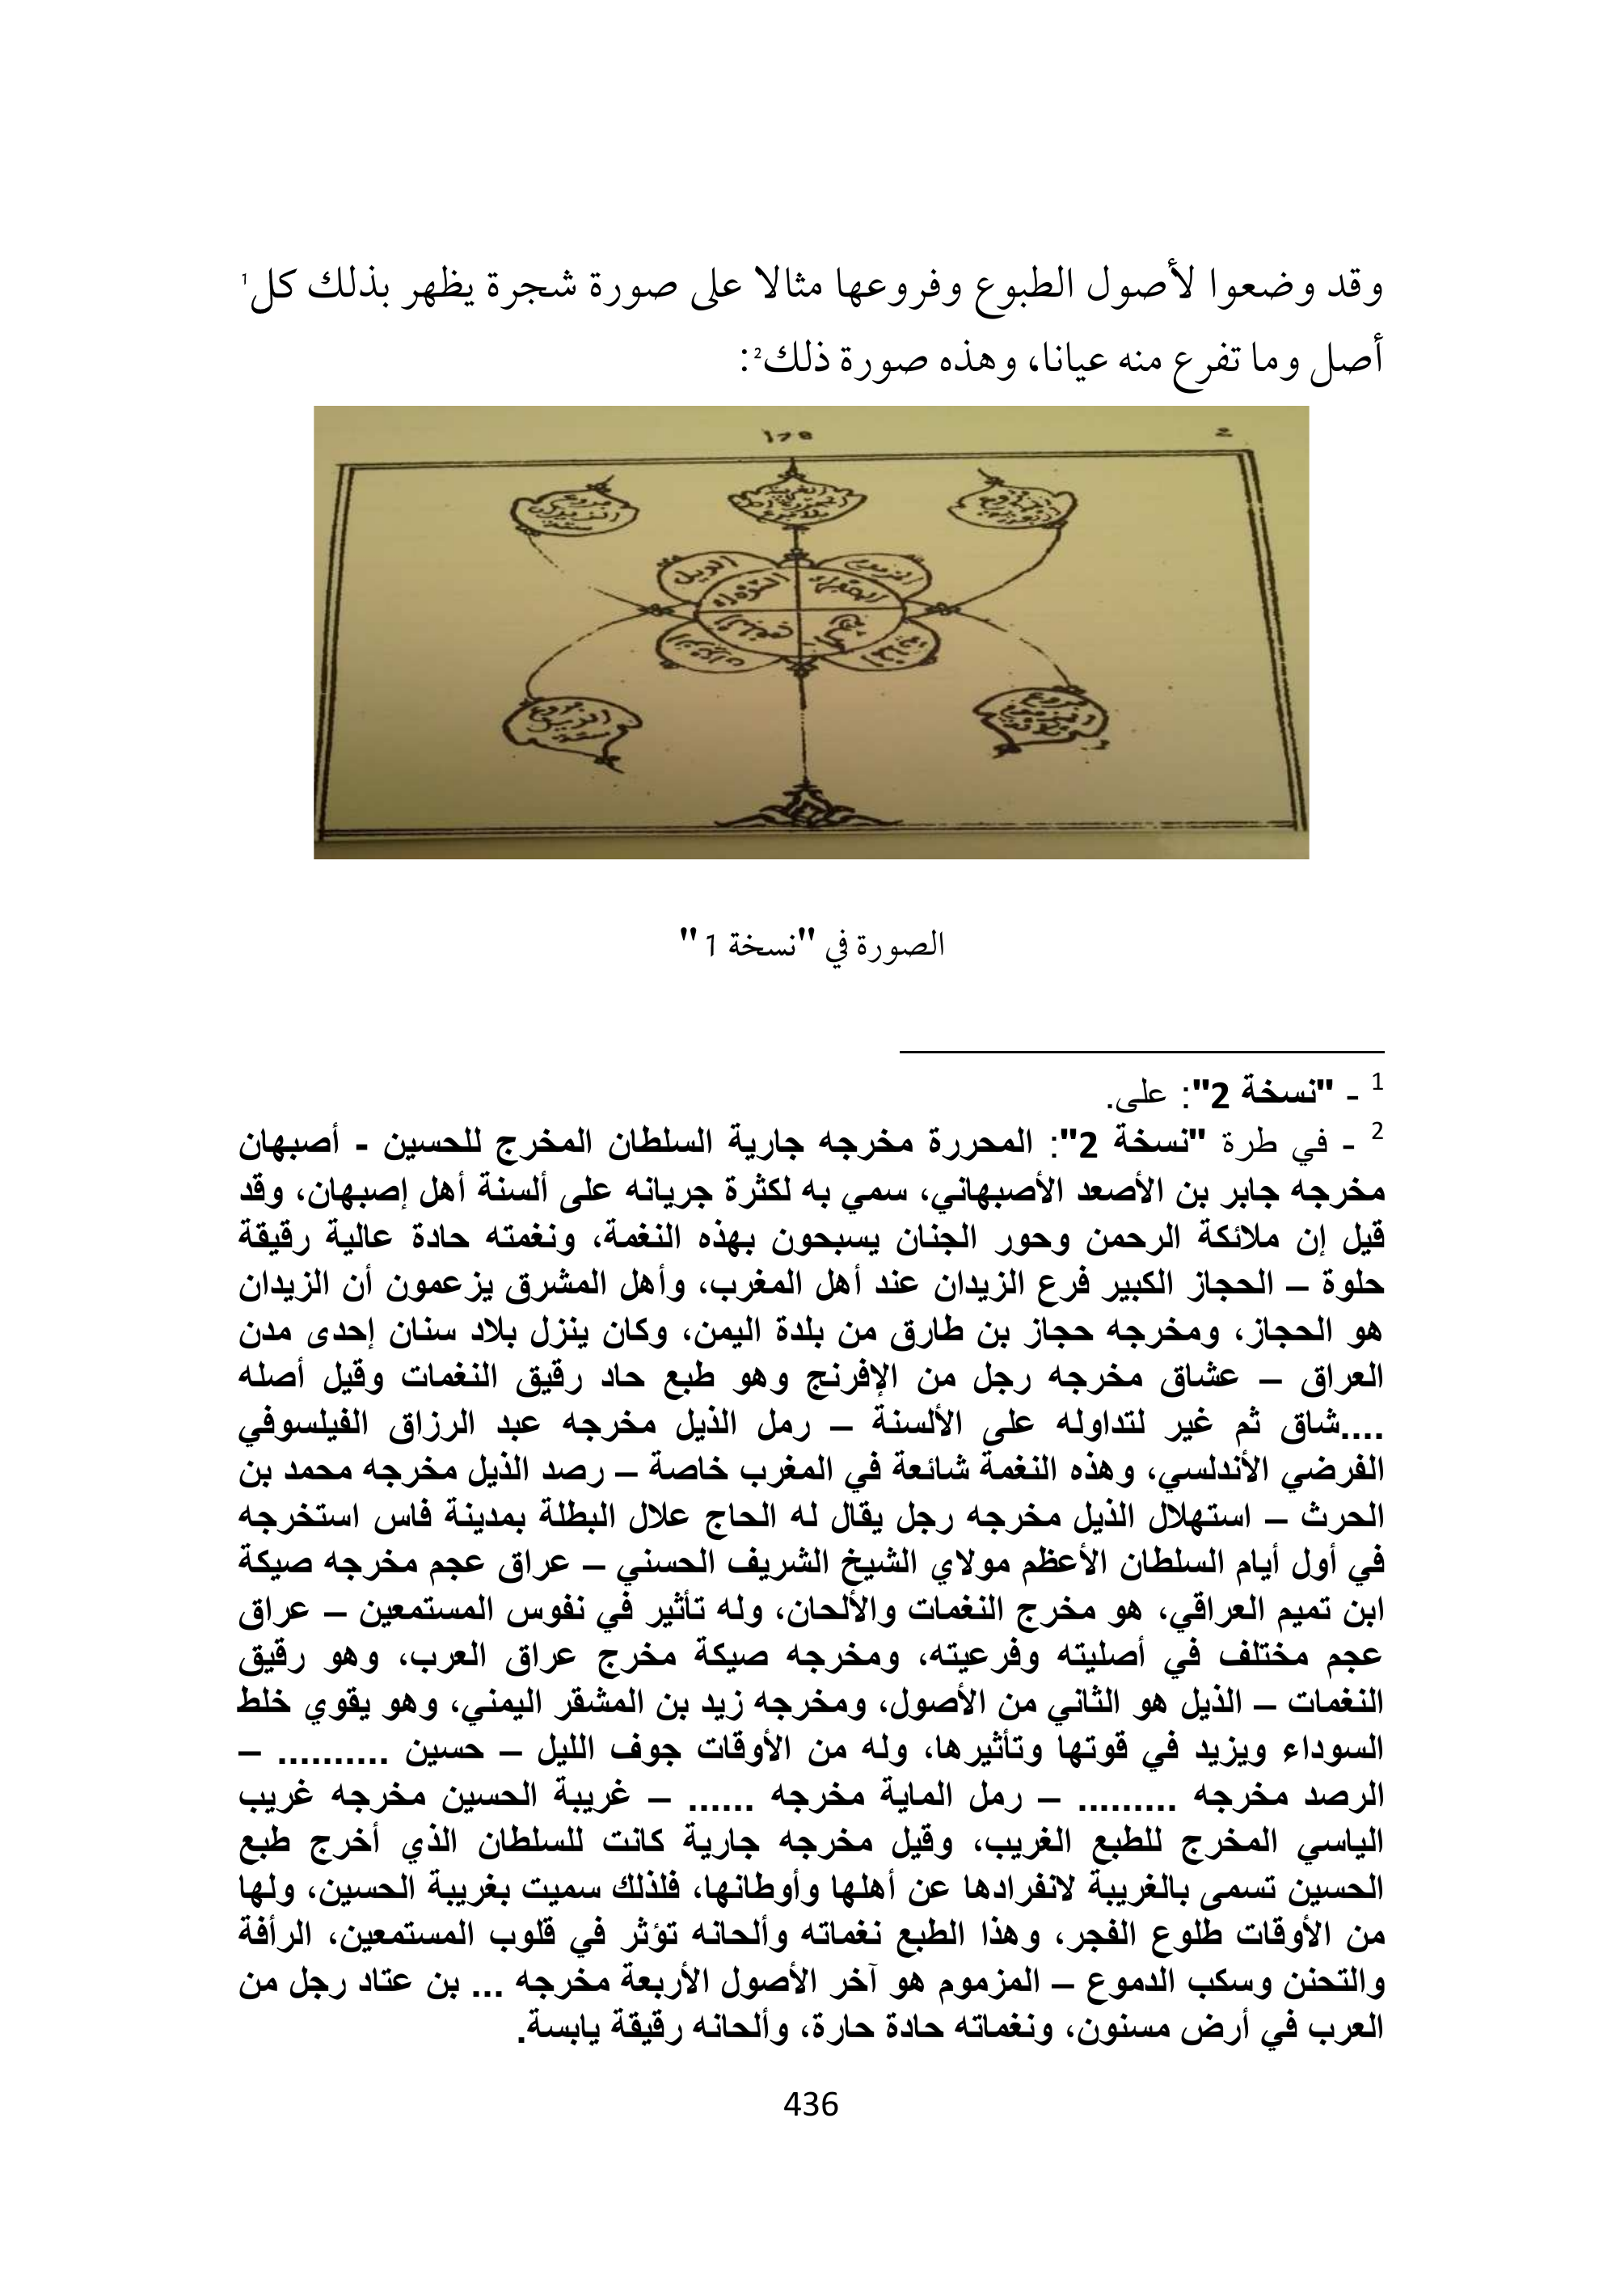 وقد وضعوا لأصول الطبوع وفروعها مثالا على صورة شجرة يظهر بذلك كل1
أصل وما تفرع منه عيانا، وهذه صورة ذلك2:
178
2
فروع
الذيل
المزموم
السوداء
الصفراء
البلغم
الماية
الزيدان
الصورة في "نسخة 1"
1 - "نسخة 2": على.
2 - في طرة "نسخة 2": المحررة مخرجه جارية السلطان المخرج للحسين - أصبهان
مخرجه جابر بن الأصعد الأصبهاني، سمي به لكثرة جريانه على ألسنة أهل إصبهان، وقد
قيل إن ملائكة الرحمن وحور الجنان يسبحون بهذه النغمة، ونغمته حادة عالية رقيقة
حلوة – الحجاز الكبير فرع الزيدان عند أهل المغرب، وأهل المشرق يزعمون أن الزيدان
هو الحجاز، ومخرجه حجاز بن طارق من بلدة اليمن، وكان ينزل بلاد سنان إحدى مدن
العراق – عشاق مخرجه رجل من الإفرنج وهو طبع حاد رقيق النغمات وقيل أصله
....شاق ثم غير لتداوله على الألسنة – رمل الذيل مخرجه عبد الرزاق الفيلسوفي
الفرضي الأندلسي، وهذه النغمة شائعة في المغرب خاصة – رصد الذيل مخرجه محمد بن
الحرث – استهلال الذيل مخرجه رجل يقال له الحاج علال البطلة بمدينة فاس استخرجه
في أول أيام السلطان الأعظم مولاي الشيخ الشريف الحسني – عراق عجم مخرجه صيكة
ابن تميم العراقي، هو مخرج النغمات والألحان، وله تأثير في نفوس المستمعين – عراق
عجم مختلف في أصليته وفرعيته، ومخرجه صيكة مخرج عراق العرب، وهو رقيق
النغمات – الذيل هو الثاني من الأصول، ومخرجه زيد بن المشقر اليمني، وهو يقوي خلط
السوداء ويزيد في قوتها وتأثيرها، وله من الأوقات جوف الليل – حسين .......... –
الرصد مخرجه ......... – رمل الماية مخرجه ...... – غريبة الحسين مخرجه غريب
الياسي المخرج للطبع الغريب، وقيل مخرجه جارية كانت للسلطان الذي أخرج طبع
الحسين تسمى بالغريبة لانفرادها عن أهلها وأوطانها، فلذلك سميت بغريبة الحسين، ولها
من الأوقات طلوع الفجر، وهذا الطبع نغماته وألحانه تؤثر في قلوب المستمعين، الرأفة
والتحنن وسكب الدموع – المزموم هو آخر الأصول الأربعة مخرجه ... بن عتاد رجل من
العرب في أرض مسنون، ونغماته حادة حارة، وألحانه رقيقة يابسة.
436